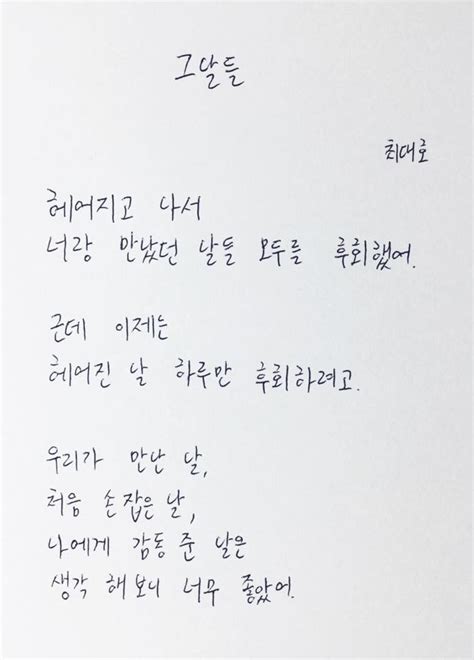 그날들
최대호
헤어지고 나서
너랑 만났던 날들 모두를 후회했어.
근데 이제는
헤어진 날 하루만 후회하려고.
우리가 만난 날,
처음 손잡은 날,
나에게 감동 준 날은
생각 해보니 너무 좋았어.